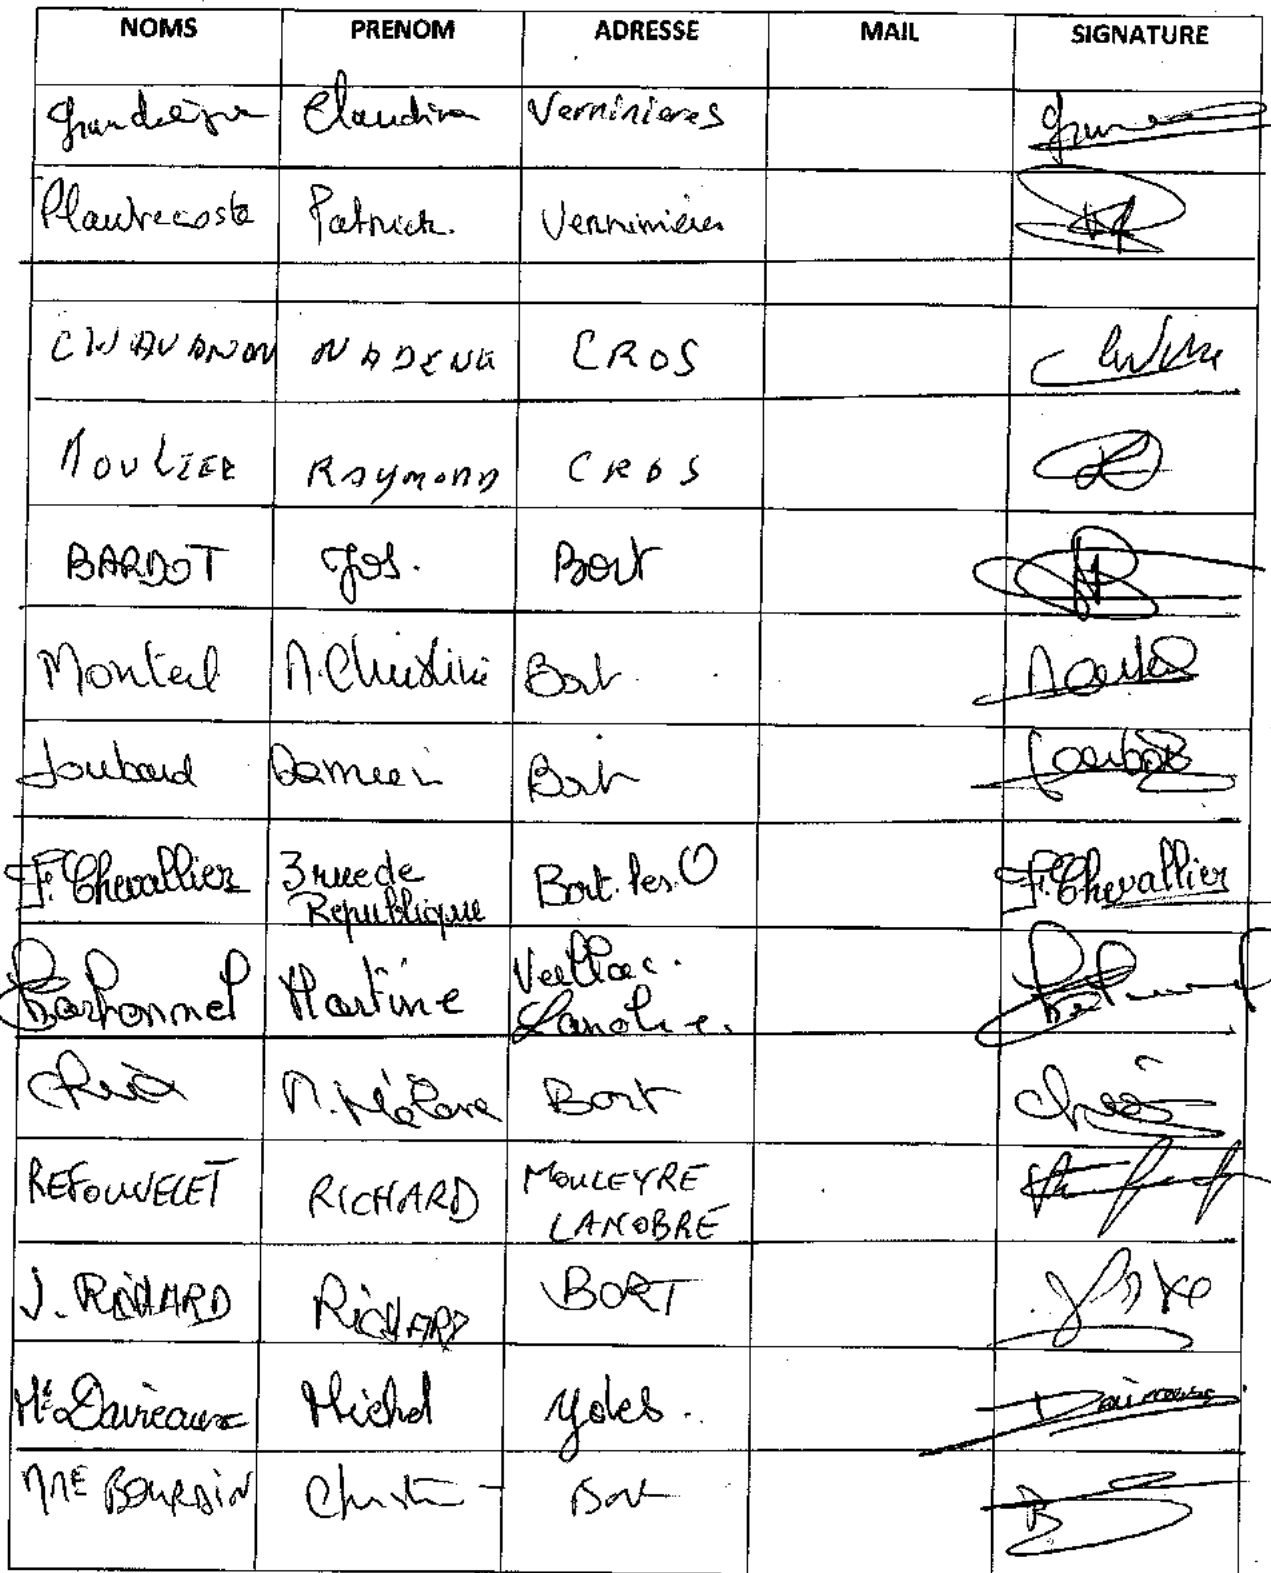 NOMS PRENOM ADRESSE MAIL SIGNATURE
Claudine Verninieres
Plantecoste Patrick. Verninières
CHAVANON NADENE CROS
MOULIER RAYMOND CROS
BARDOT Jos. Bort
Monteil M.Christine Bort
Joubard Damien Bort
F. Chevallier 3 rue de Bort. les. O F. Chevallier
Republique
Martine Veillac.
Lanobre.
M. Hélène Bort
REFOUVELET RICHARD MOULEYRE
LANOBRE
J. RICHARD RicHARD BORT
Mr Daireaux Michel Ydes.
MME BOURDIN Christ Bort